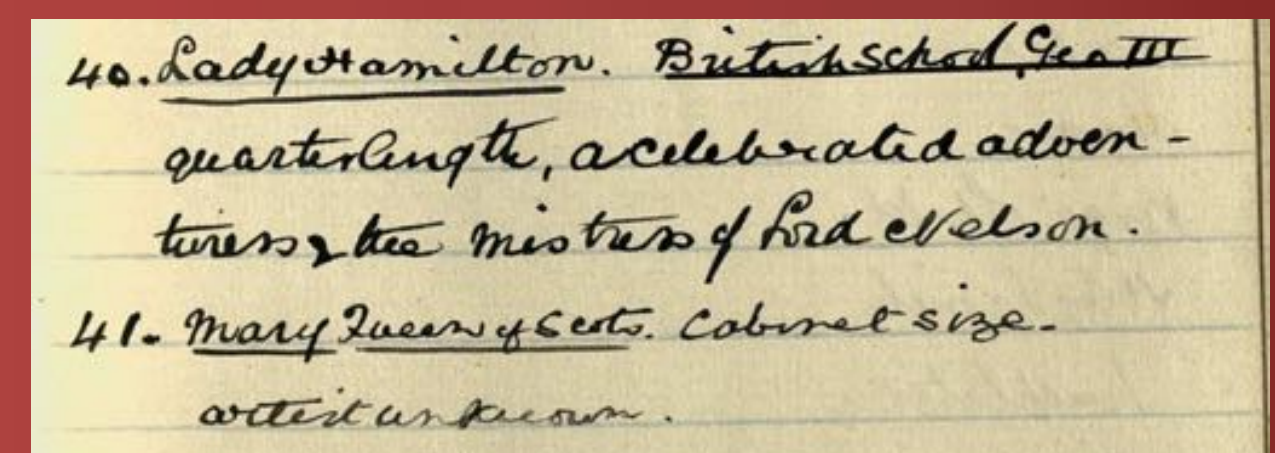 40. Lady Hamilton. British School, Geo III
quarter length, a celebrated adven-
turess & the mistress of Lord Nelson.
41. Mary Queen of Scots. Cabinet size.
artist unknown.